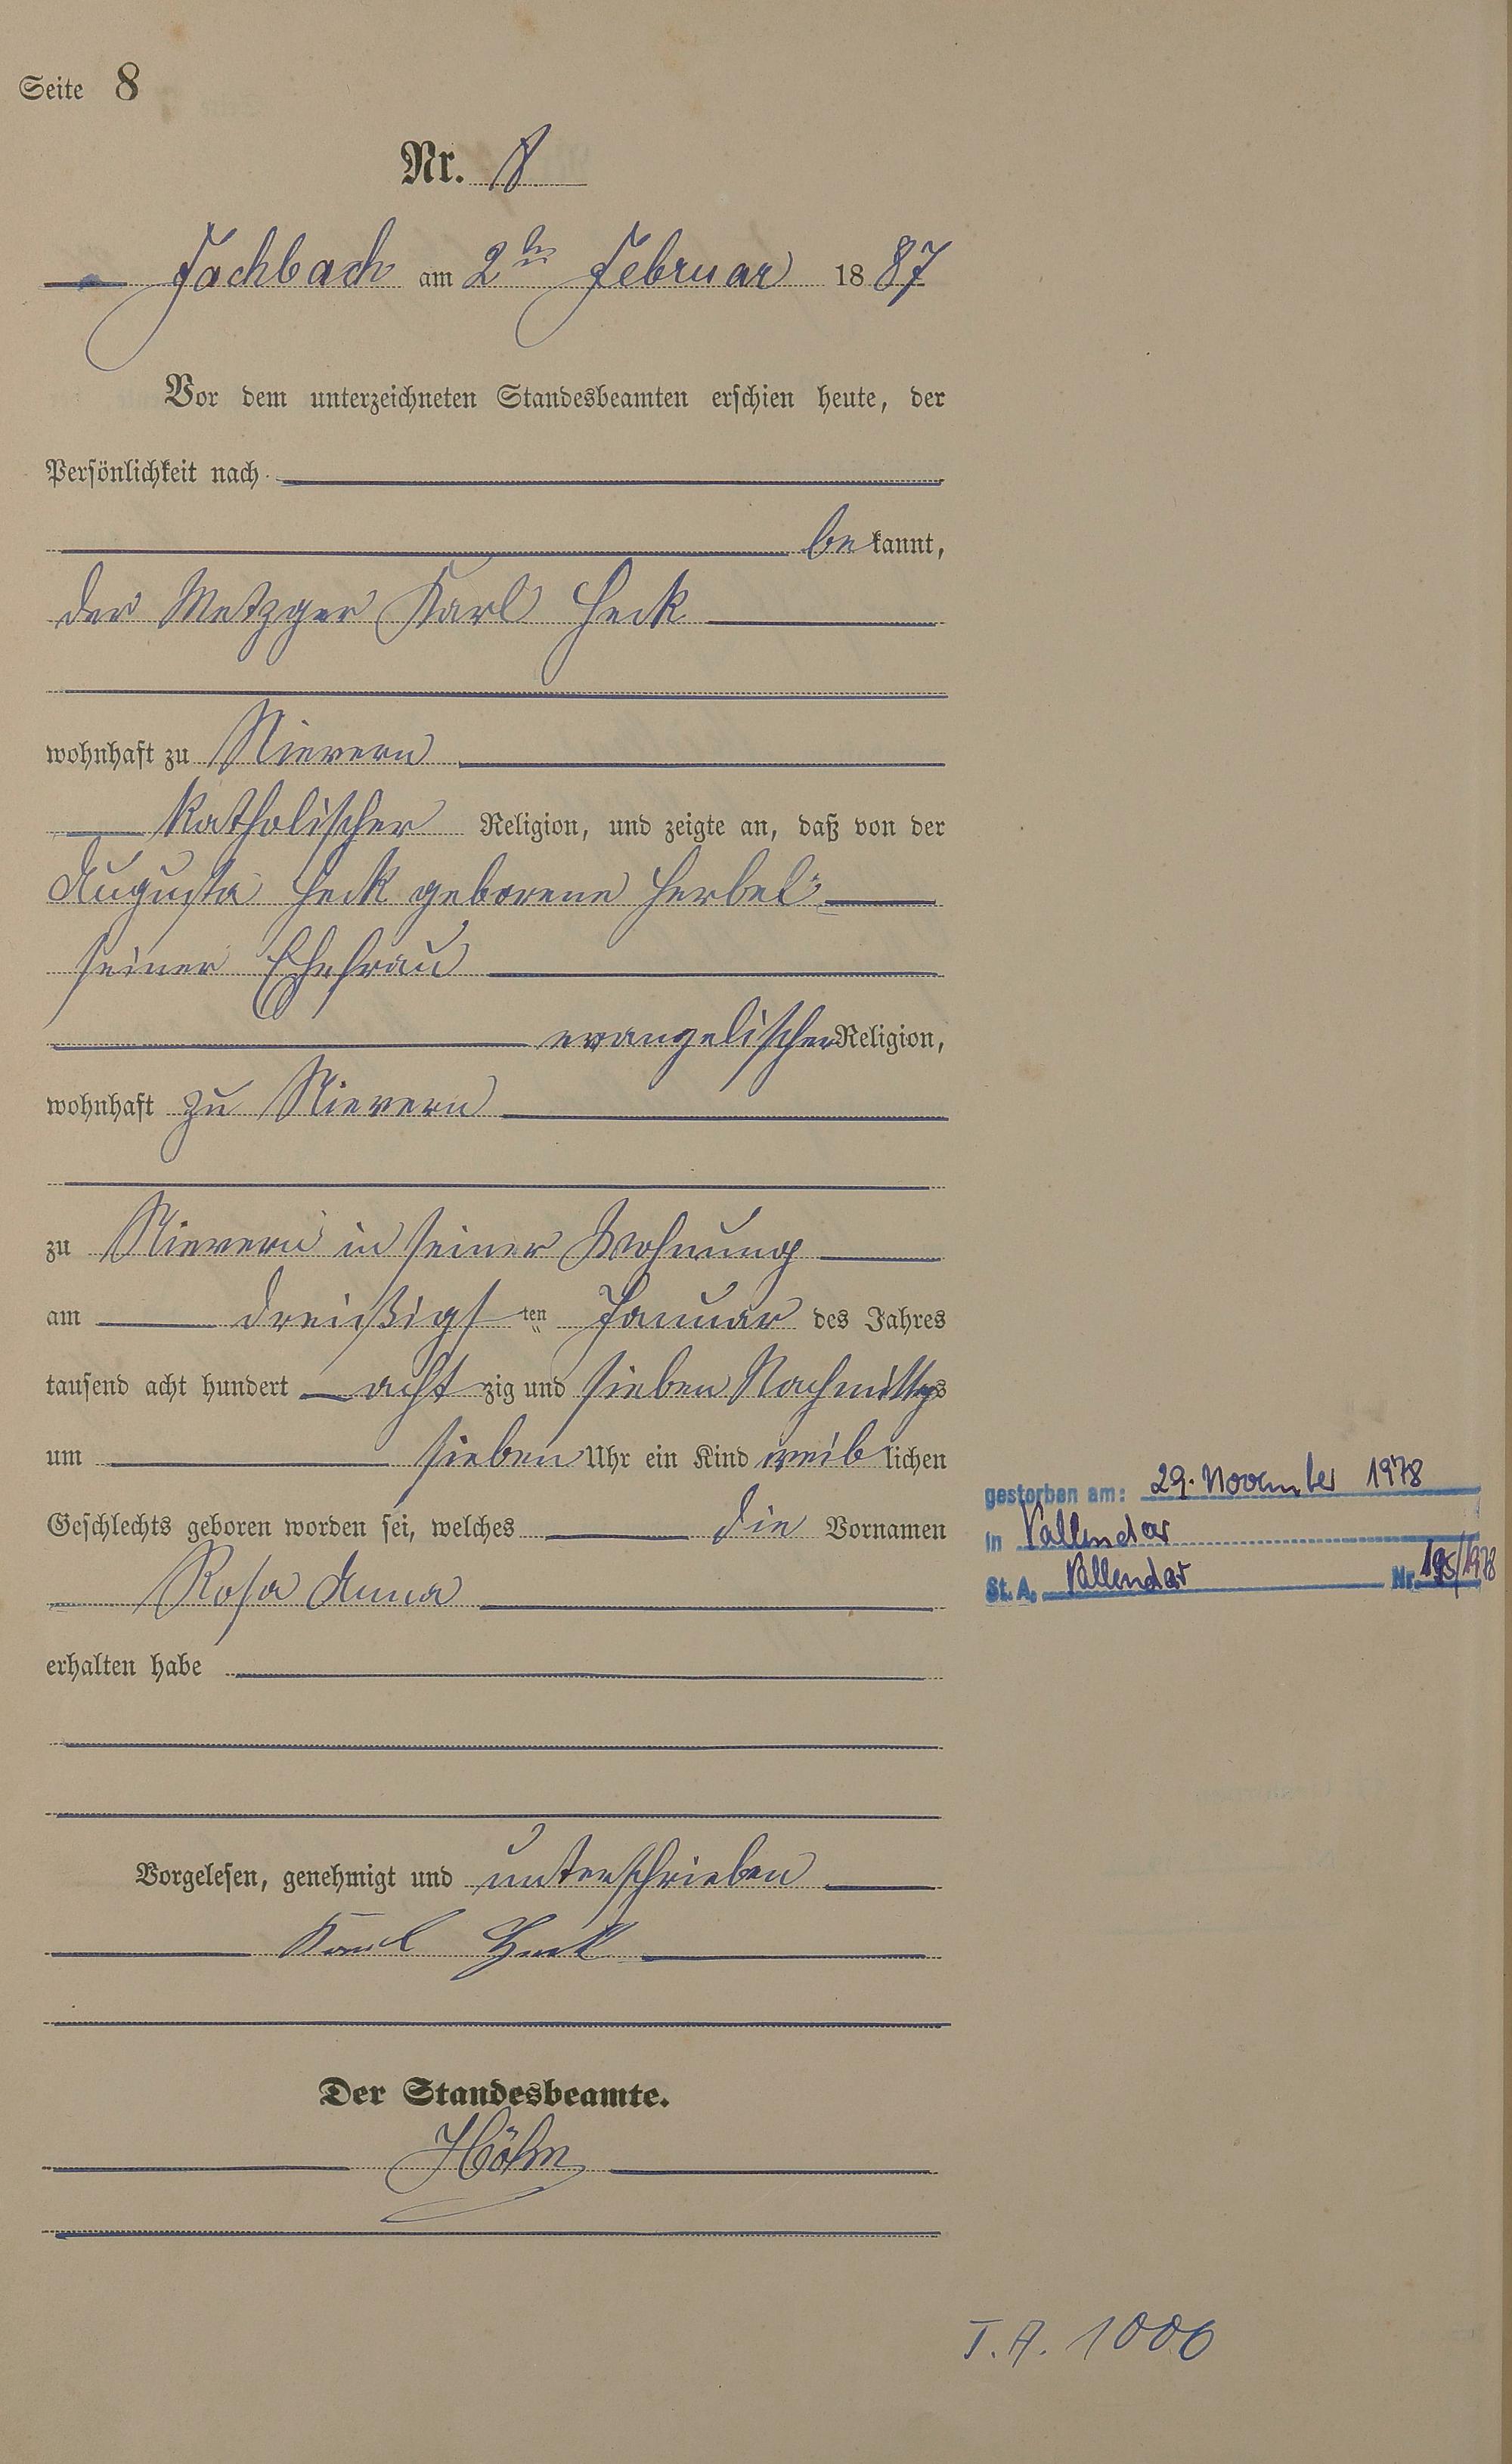 Seite 8
Nr. 8
Fachbach am 2ten Februar 1887
Vor dem unterzeichneten Standesbeamten erschien heute, der
Persönlichkeit nach
bekannt,
der Metzger Karl Heck
wohnhaft zu Nievern
katholischer Religion, und zeigte an, daß von der
Augusta Heck geborene Herbel
seiner Ehefrau
evangelischer Religion,
wohnhaft zu Nievern
zu Nievern in seiner Wohnung
am dreißigsten Januar des Jahres
tausend acht hundert achtzig und sieben Nachmittags
um sieben Uhr ein Kind weiblichen
Geschlechts geboren worden sei, welches die Vornamen
Rosa Anna
erhalten habe
Vorgelesen, genehmigt und unterschrieben
Karl Heck
Der Standesbeamte.
gestorben am: 29. November 1978
in Vallendar
St. A. Vallendar Nr. 195/1978
T.A. 1006